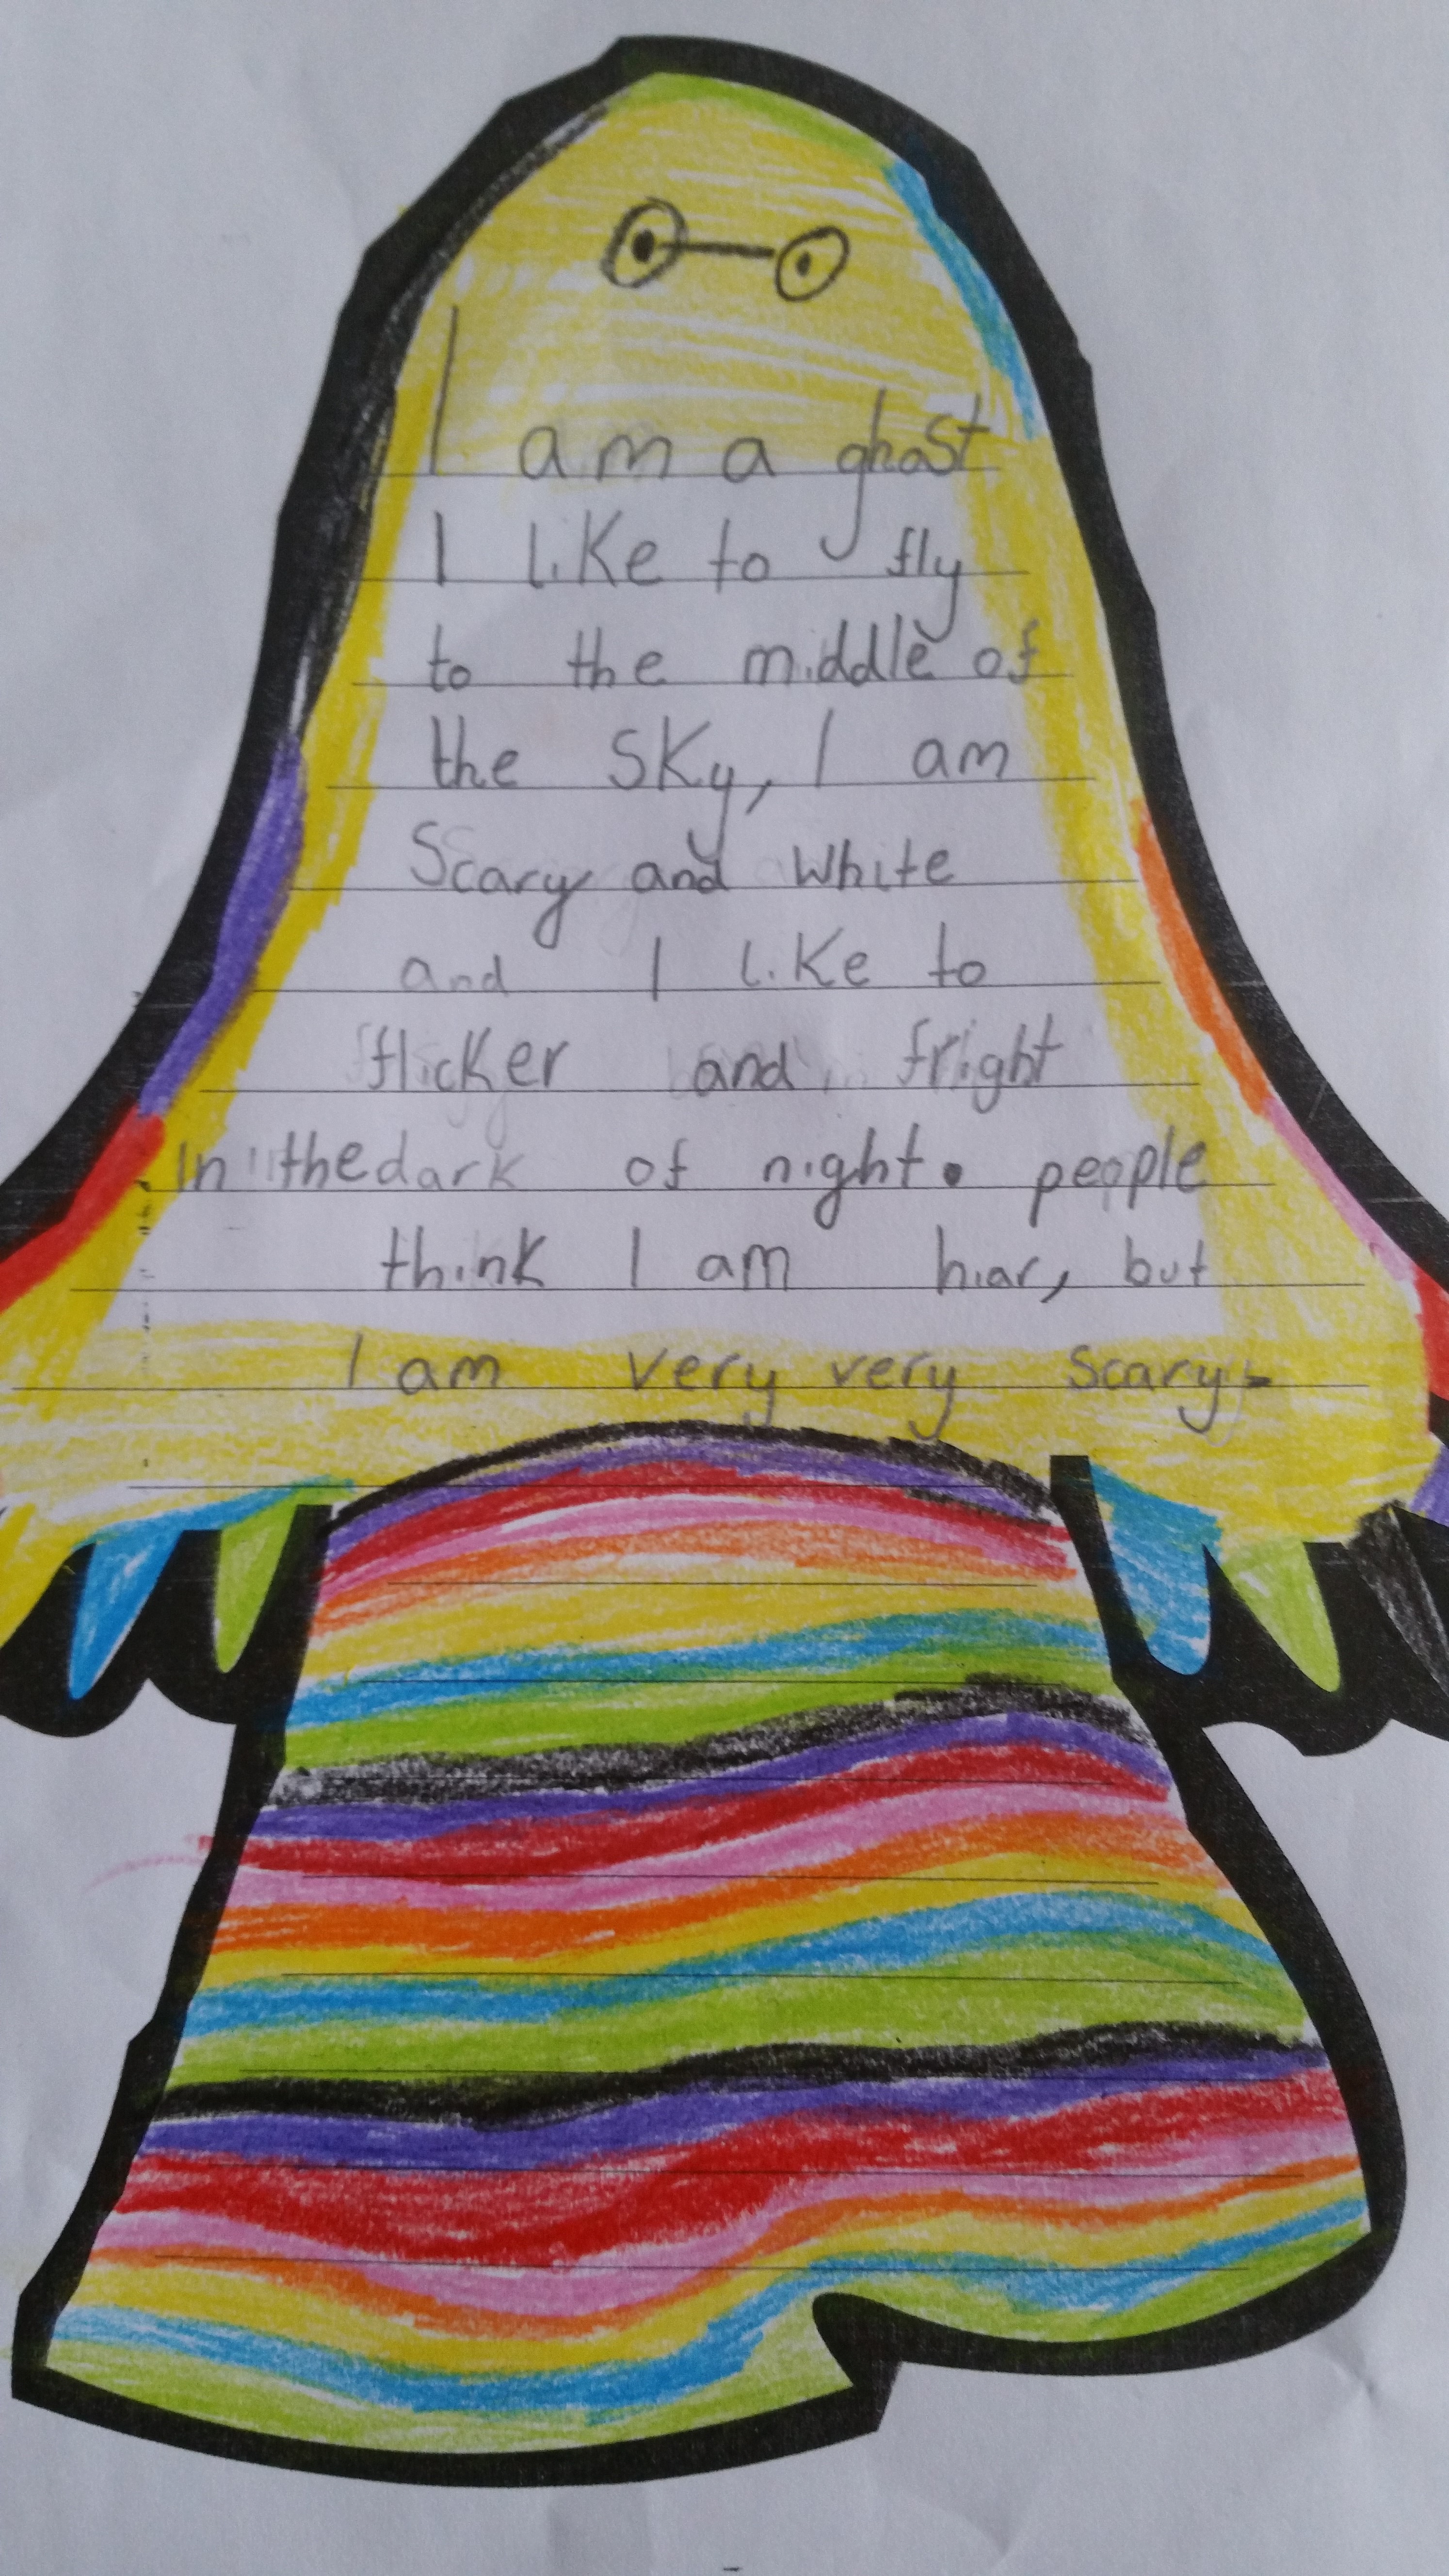 I am a ghost
I like to fly
to the middle of
the sky, I am
Scary and white
and I like to
flicker and fright
In the dark of night. people
think I am hiar, but
I am very very scary.